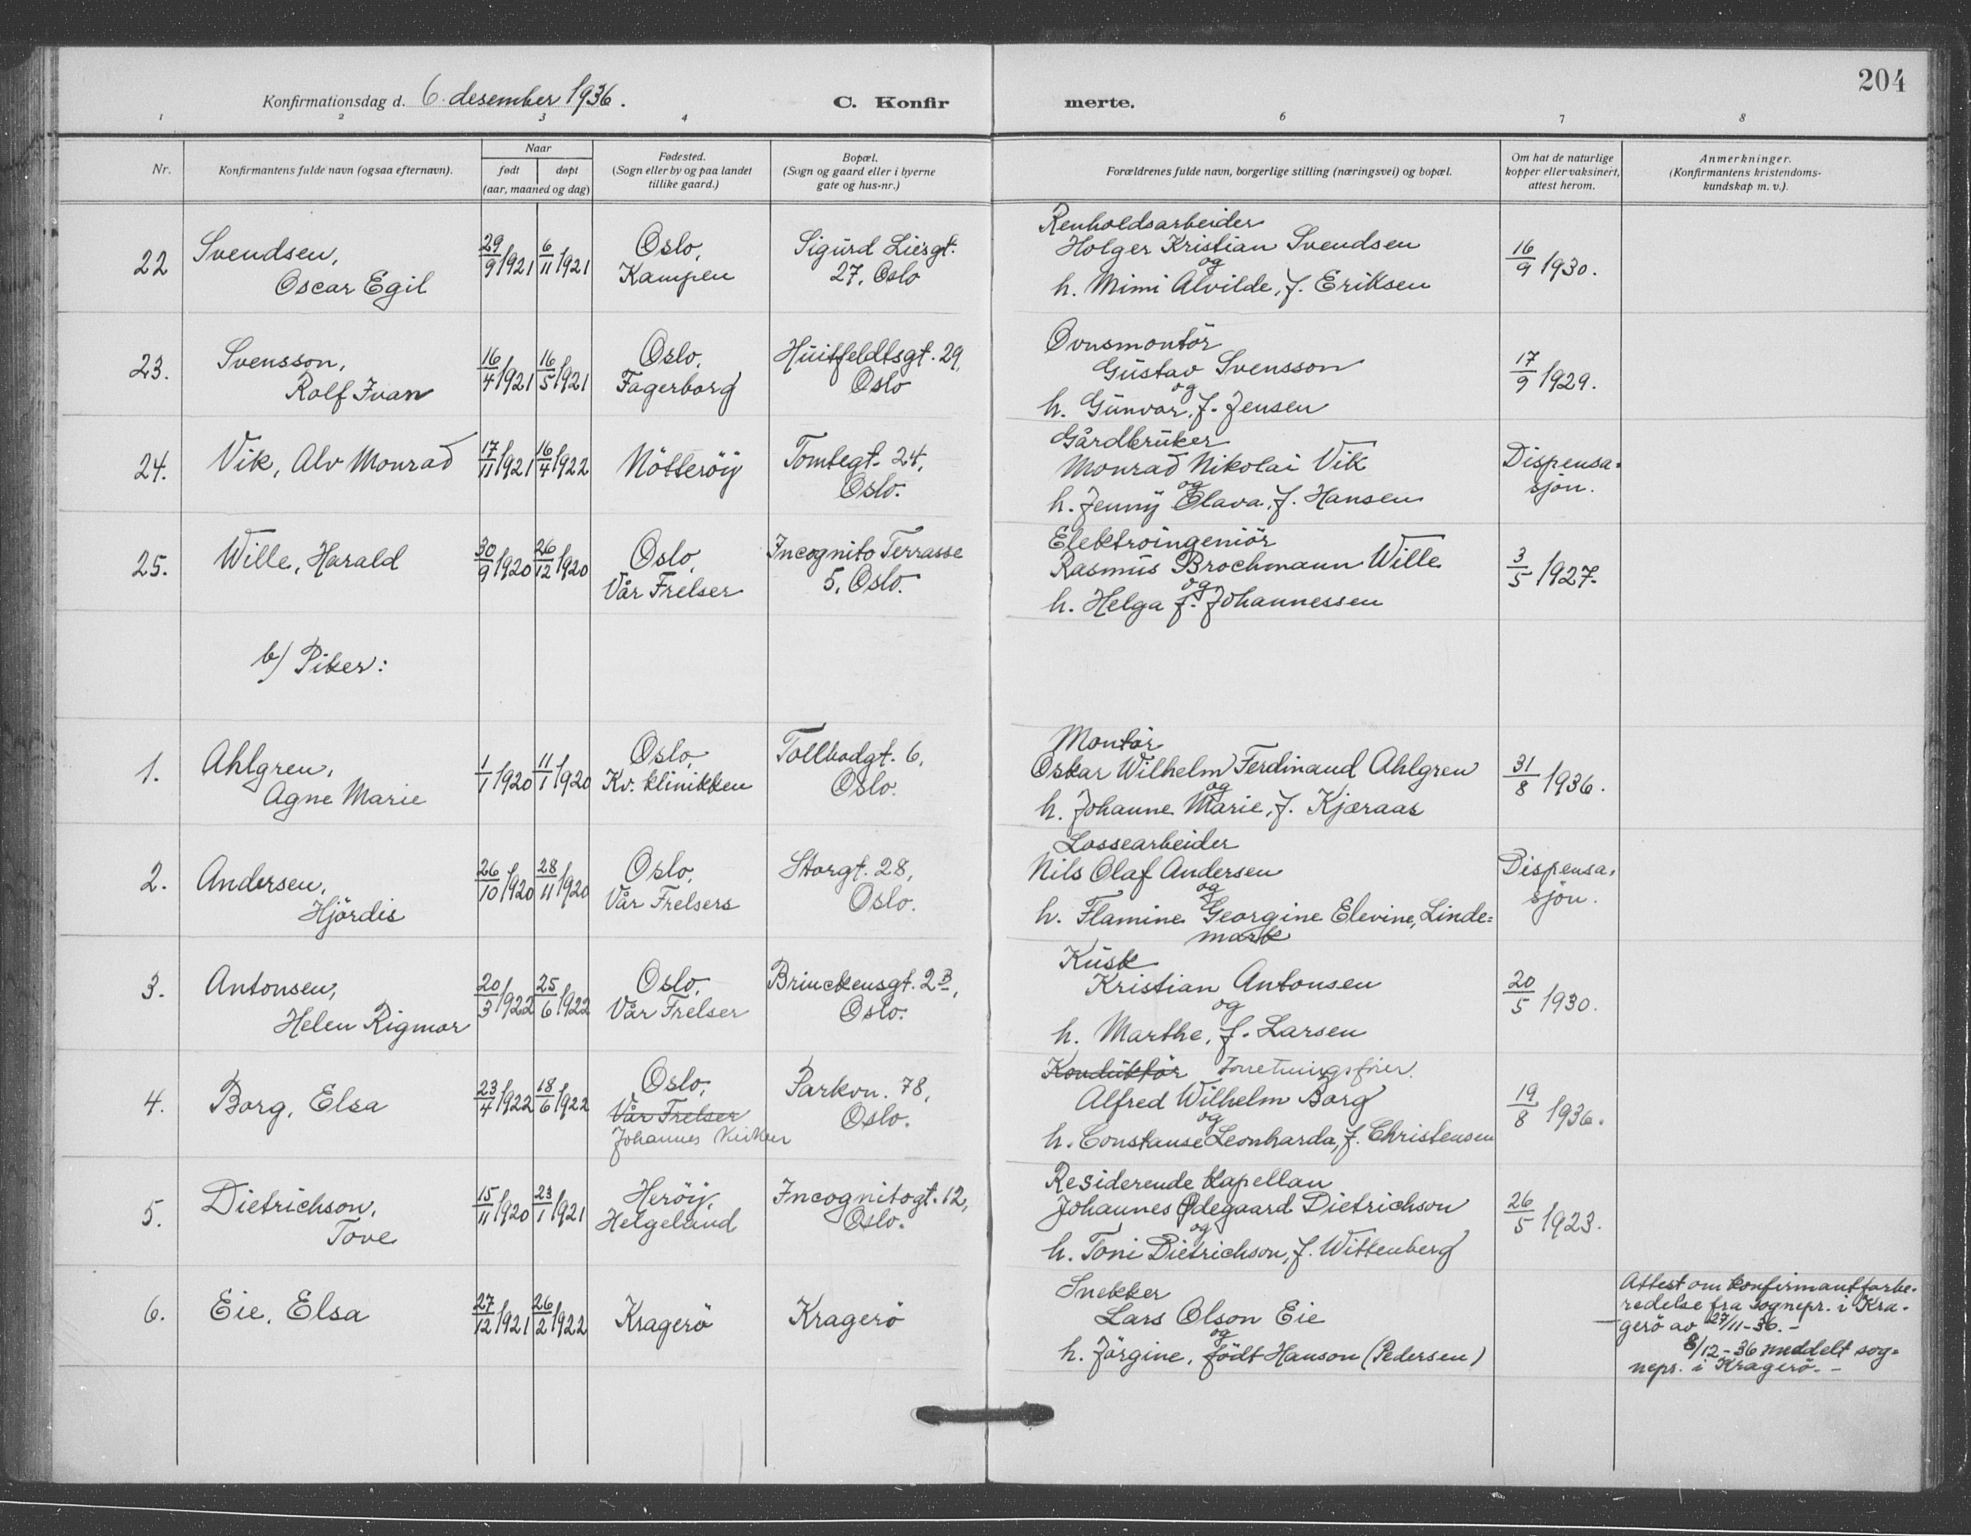 204
Konfirmationsdag d. 6. desember 1936. C. Konfirmerte.
1 2 3 4 6 7 8
Nr. Konfirmantens fulde navn (ogsaa efternavn). Naar født døpt (aar, maaned og dag) Fødested. (Sogn eller by og paa landet tillike gaard.) Bopæl. (Sogn og gaard eller i byerne gate og hus-nr.) Forældrenes fulde navn, borgerlige stilling (næringsvei) og bopæl. Om hat de naturlige kopper eller vaksinert, attest herom. Anmerkninger. (Konfirmantens kristendoms-kundskap m. v.).
22 Svendsen, Oscar Egil 29/9 1921 6/11 1921 Oslo, Kampen Sigurd Liesgt. 27, Oslo
Renholdsarbeider
Holger Kristian Svendsen
og
h. Mimi Alvilde, f. Eriksen
16/9 1930.
23. Svensson, Rolf Ivan 16/4 1921 16/5 1921 Oslo, Fagerborg Huitfeldtsgt. 29, Oslo
Ovnsmontör
Gustav Svensson
og
h. Gunvor, f. Jensen
17/9 1929.
24. Vik, Alv Monrad 17/11 1921 16/4 1922 Nötteröy Tomtegt. 24, Oslo.
Gårdbruker
Monrad Nikolai Vik
og
h. Jenny Olava, f. Hansen
Dispensasjon.
25. Wille, Harald 30/9 1920 26/12 1920 Oslo, Vår Frelser Incognito Terrasse 5, Oslo.
Elektroingeniör
Rasmus Brochmann Wille
og
h. Helga f. Johannessen
3/5 1927.
b/ Piker:
1. Ahlgren, Agne Marie 1/1 1920 11/1 1920 Oslo, Kv. klinikken Tollbodgt. 6, Oslo.
Montör
Oskar Wilhelm Ferdinand Ahlgren
og
h. Johanne Marie, f. Kjæraas
31/8 1936.
2. Andersen, Hjördis 26/10 1920 28/11 1920 Oslo, Vår Frelsers Storgt. 28, Oslo.
Lossearbeider
Nils Olaf Andersen
og
h. Flamine Georgine Elevine, Linde=
mark
Dispensasjon.
3. Antonsen, Helen Rigmor 20/3 1922 25/6 1922 Oslo, Vår Frelser Brinckensgt. 2B, Oslo.
Kusk
Kristian Antonsen
og
h. Marthe, f. Larsen
20/5 1930.
4. Borg, Elsa 23/4 1922 18/6 1922 Oslo, Vår Frelser Johannes Kirken Parkvn. 78, Oslo.
Konduktör Forretningsfører.
Alfred Wilhelm Borg
og
h. Constanse Leonharda, f. Christensen
19/8 1936.
5. Dietrichson, Tove 15/11 1920 23/1 1921 Heröy, Helgeland Incognitogt. 12, Oslo.
Residerende kapellan
Johannes Ødegaard Dietrichson
og
h. Toni Dietrichson, f. Wittenberg
26/5 1923.
6. Eie, Elsa 27/12 1921 26/2 1922 Kragerö Kragerö
Snekker
Lars Olson Eie
og
h. Jörgine, födt Hanson (Pedersen)
—
Attest om konfirmantforbe-
redelse fra sognepr. i Kra-
gerö av 27/11-36. -
8/12-36 meddelt sog=
nepr. i Kragerö. -